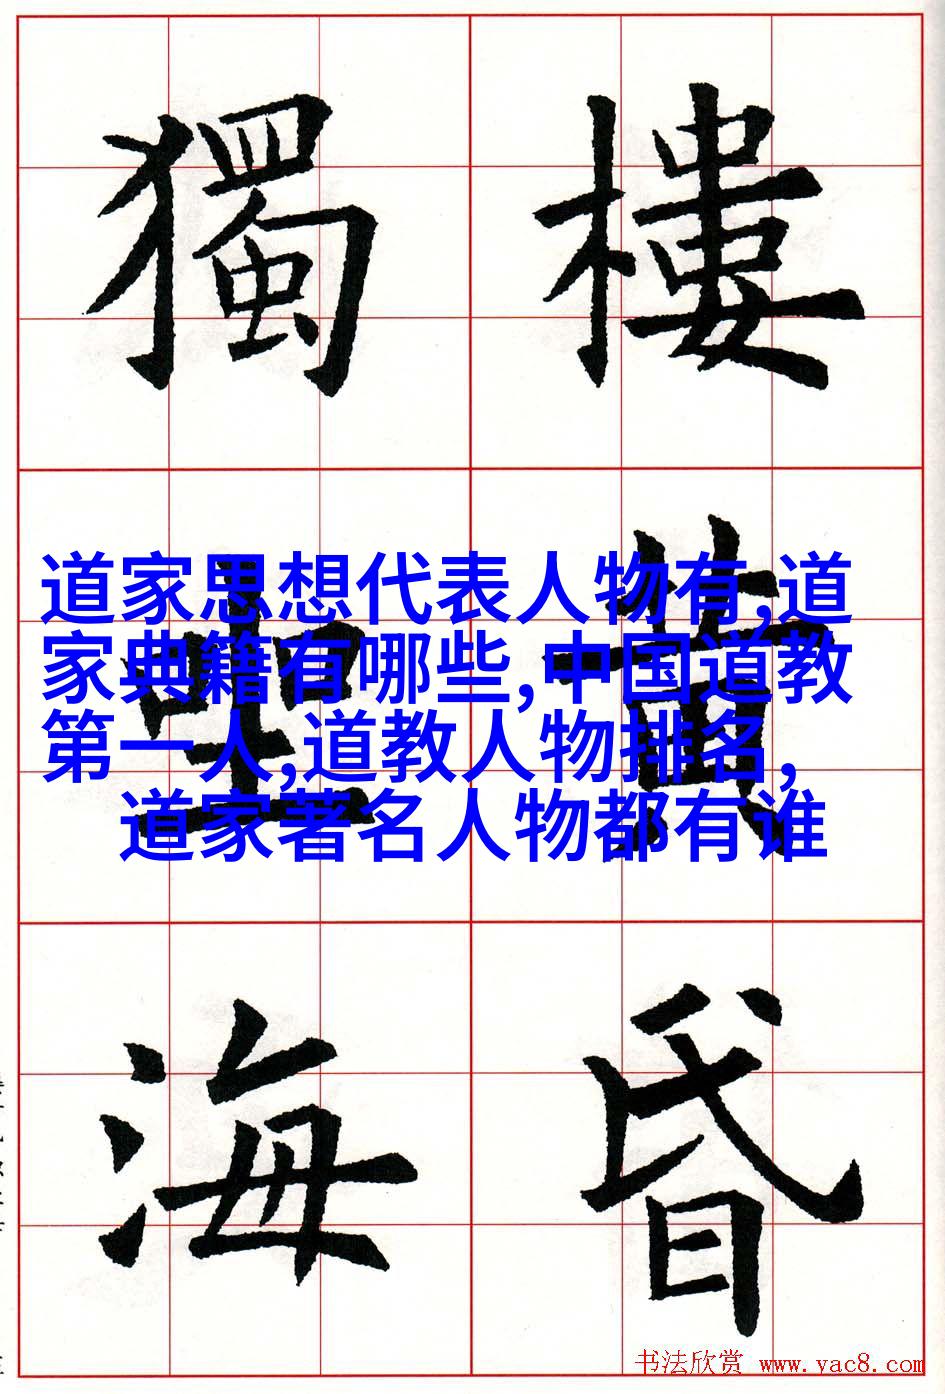 獨 樓
黄
道家思想代表人物有,道
家典籍有哪些,中国道教
第一人,道教人物排名,
道家著名人物都有谁
海 昏
书法欣赏 www.yac8.com